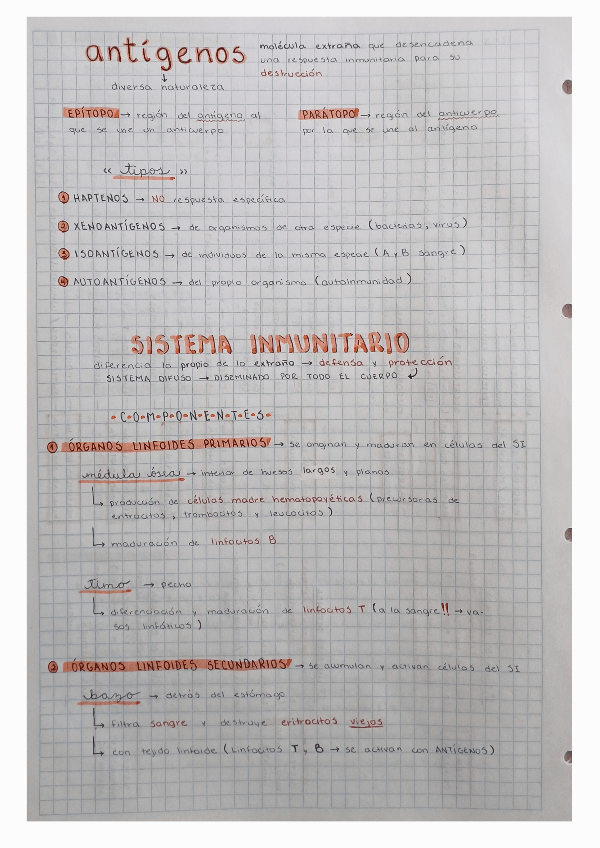 antígenos
molécula extraña que desencadena
una respuesta inmunitaria para su
destrucción
↓
diversa naturaleza
EPÍTOPO → región del antígeno al
que se une un anticuerpo
PARÁTOPO → región del anticuerpo
por la que se une al antígeno
« tipos »
1 HAPTENOS → NO respuesta específica
2 XENOANTÍGENOS → de organismos de otra especie (bacterias, virus)
3 ISOANTÍGENOS → de individuos de la misma especie (A y B sangre)
4 AUTOANTÍGENOS → del propio organismo (autoinmunidad)
SISTEMA INMUNITARIO
diferencia lo propio de lo extraño → defensa y protección
SISTEMA DIFUSO → DISEMINADO POR TODO EL CUERPO ↲
- C-O-M-P-O-N-E-N-T-E-S-
1 ÓRGANOS LINFOIDES PRIMARIOS → se originan y maduran en células del SI
médula ósea → interior de huesos largos y planos
↳ producción de células madre hematopoyéticas (precursoras de
eritrocitos, trombocitos y leucocitos)
↳ maduración de linfocitos B
timo → pecho
↳ diferenciación y maduración de linfocitos T (a la sangre!! → va-
sos linfáticos)
2 ÓRGANOS LINFOIDES SECUNDARIOS → se acumulan y activan células del SI
bazo → detrás del estómago
↳ filtra sangre y destruye eritrocitos viejos
↳ con tejido linfoide (Linfocitos T y B → se activan con ANTÍGENOS)